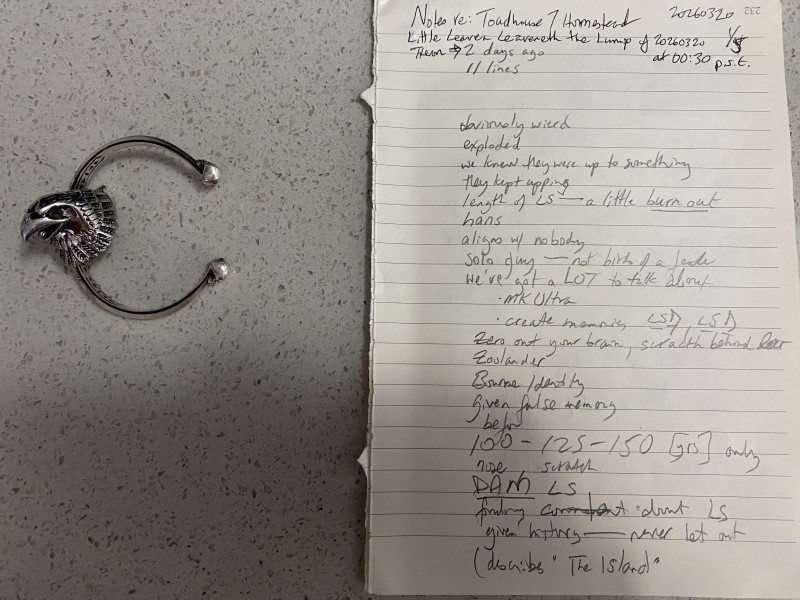 232
Notes re: Toadhouse 7 Homestead 20260320
Little Leaven Leaveneth the Lump of 20260320 1/5
Them → 2 days ago at 00:30 p.s.t.
11 lines
obviously wierd
exploded
we knew they were up to something
they kept upping
length of LS — a little burn out
hans
aligns w/ nobody
solo guy — not birth of a leader
we've got a LOT to talk about
· MK Ultra
· create memories LSD, LSD
Zero out your brain, scracth behind
Zoolander
Bourne Identity
given false memory
befor
100 - 125 - 150 [grs] only
nose scratch
DAM LS
finding about LS
given history — never let out
(discribes "The Island"